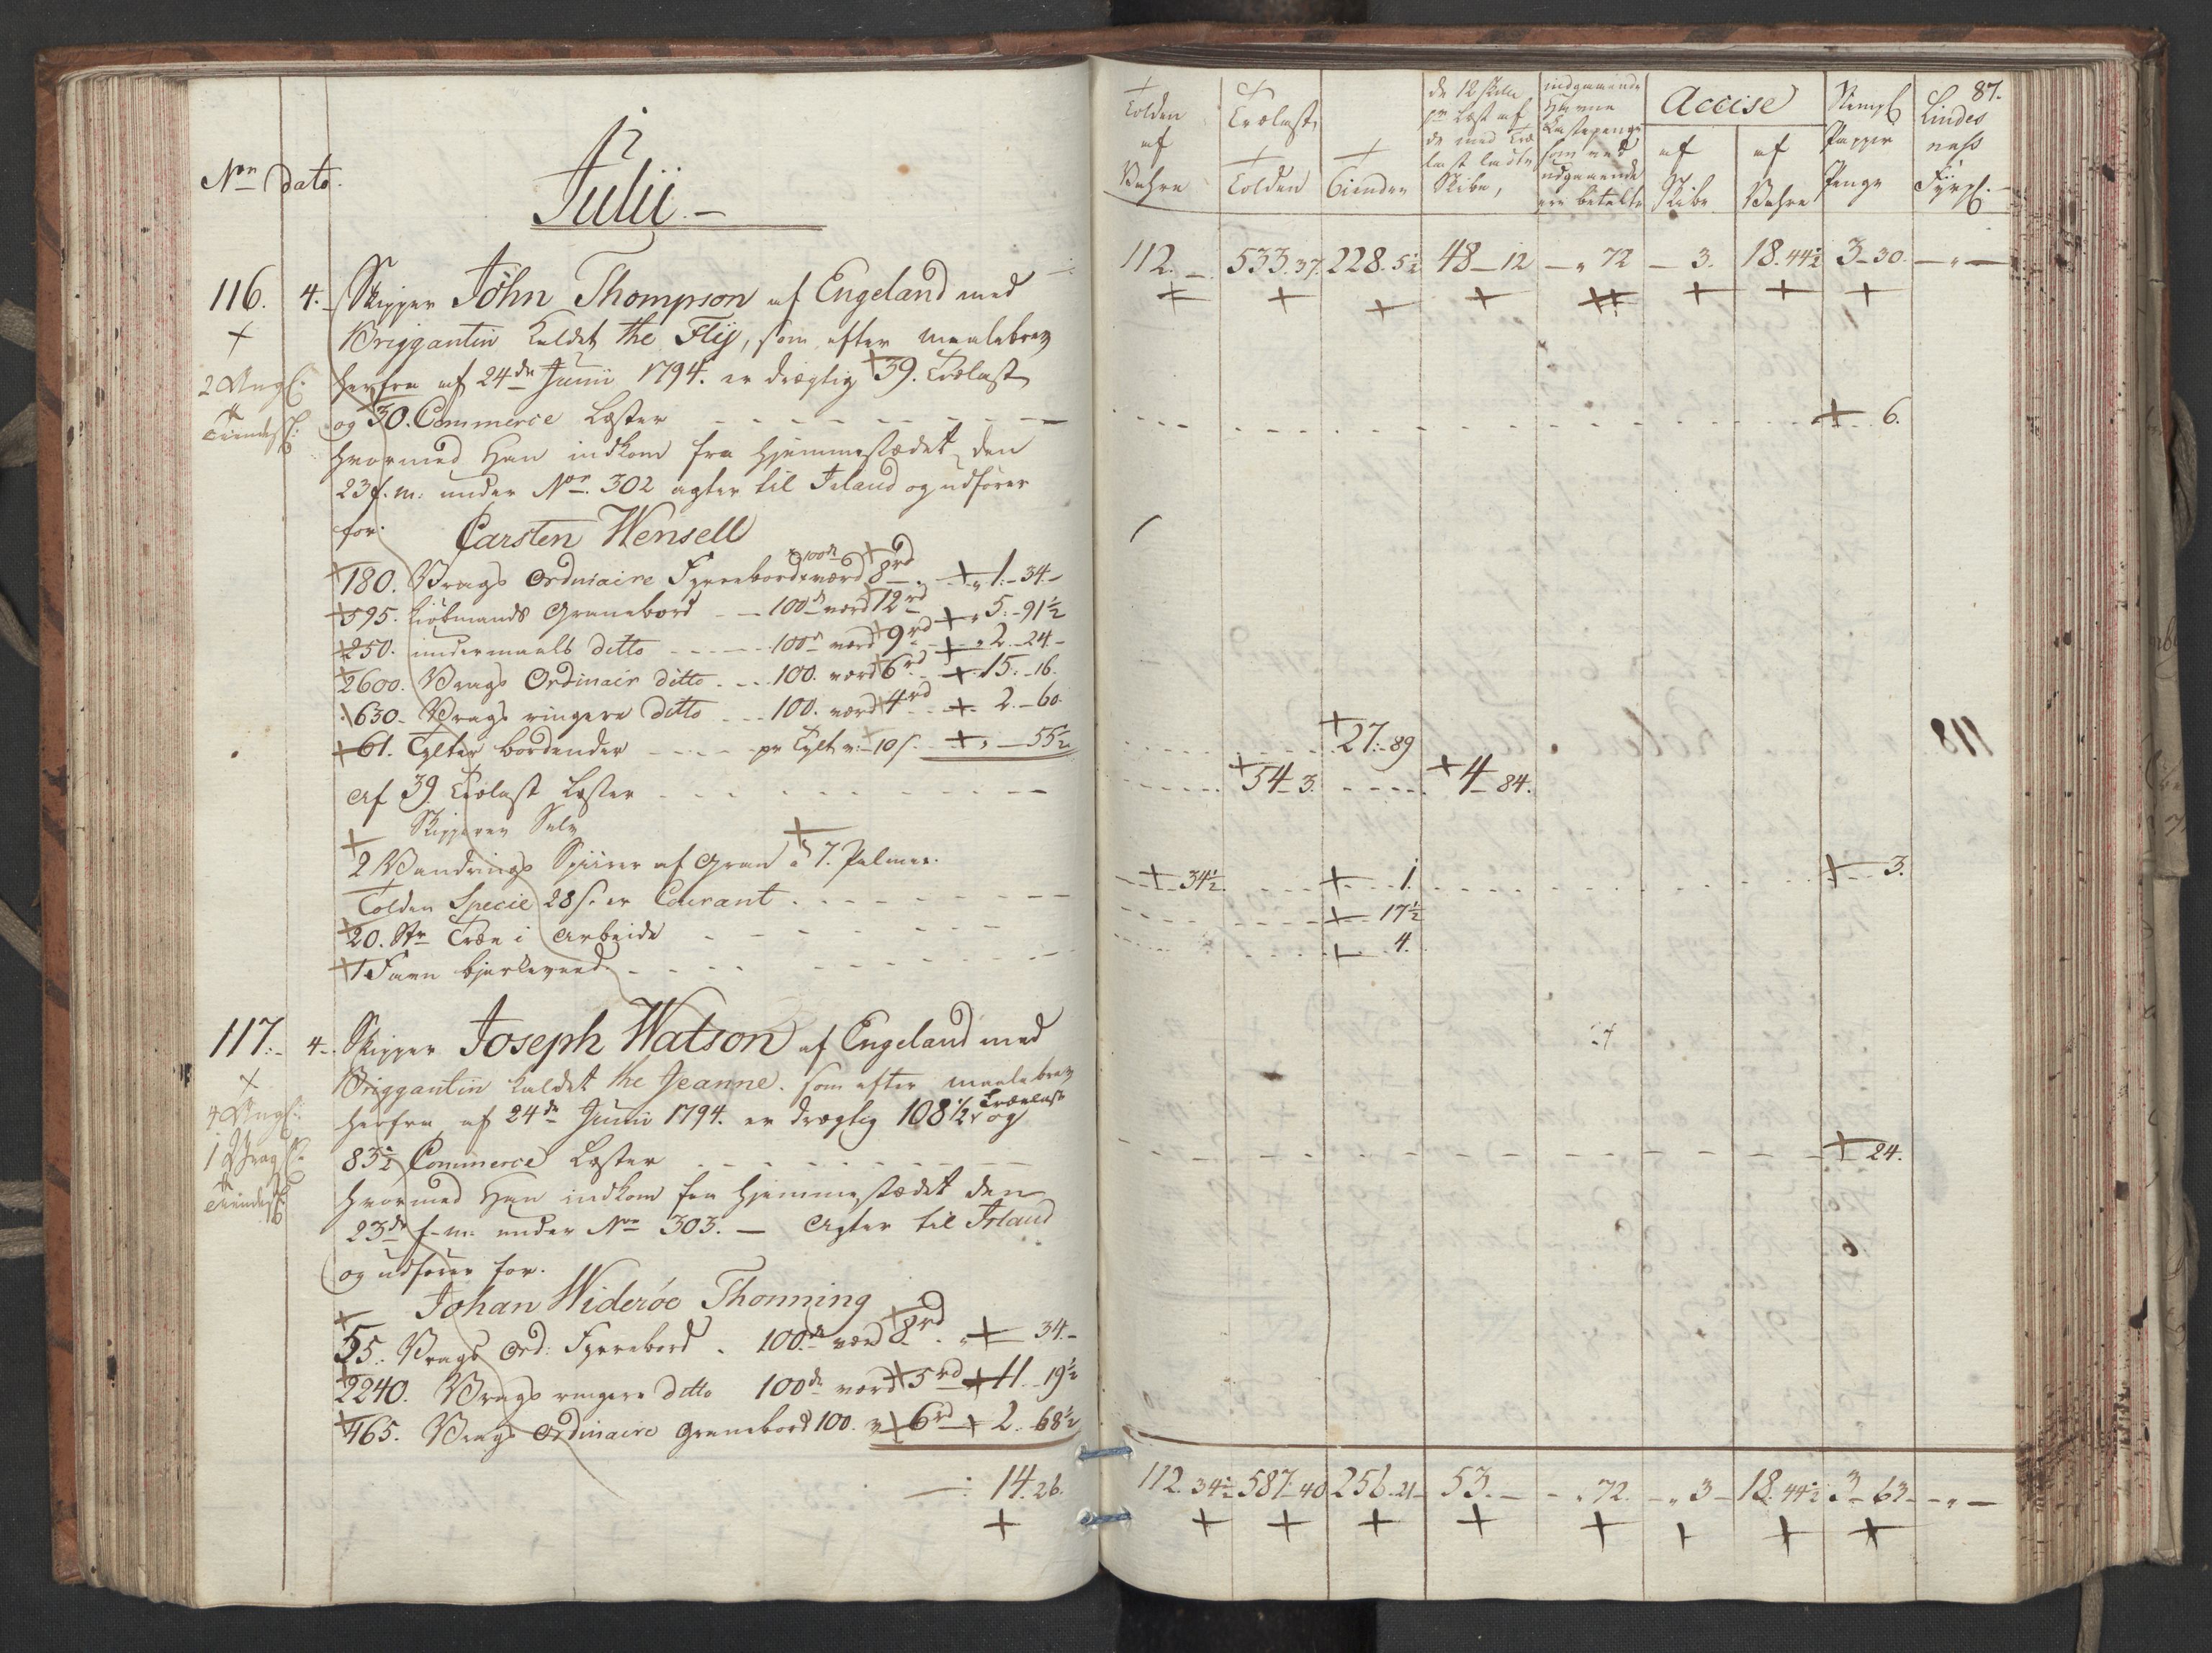 Non dato.
Julii.-
116. 4. Skipper John Thompson af Engeland med
Briggantin kaldet the Flij, som efter maalebrev
2 Angl: herfra af 24de Junii 1794. er drægtig 39. Trælast
Tiendes: og 30. Commerce Læster
hvormed Han indkom fra Hjemmestædet den
23 f.m: under Non. 302 agter til Irland og udfører
for. Carsten Wensell
180. Vrags Ordinaire Fyrrebord 100de værd 8rd 1.-34-
595. Kiøbmands Granebord 100de værd 12rd 5.-91½
250. undermaals ditto 100de værd 9rd 2.-24-
2600. Vrags Ordinair ditto 100. værd 6rd 15.-16.
630. Vrags ringere ditto 100. værd 4rd 2.-60.
61. Tylter bordender pr Tylt 10s. 55½
Af 39 Trælast Læster
Skipperen Selv
2 Vandrings Spiirer af Gran a 7. Palmer.
Tolden Specie 28s. er Courant
20. St. Træe i Arbeide
1 Favn bjerkeveed
117.- 4-. Skipper Joseph Watson af Engeland med
Briggantin kaldet the Jeanne. som efter maalebrev
4 Angl: herfra af 24de Junii 1794. er drægtig 108½ Trælast og
1 Vrag 83½ Commerce Læster
Tiendes: hvormed Han indkom fra Hjemmestædet den
23de f.m: under No 303. - Agter til Irland
og udfører for.
Johan Widerøe Thonning
55. Vrags Ord: Fyrrebord. 100de værd 8rd. 34.-
2240. Vrags ringere ditto 100de værd 5rd 11. 19½
465. Vrags Ordinaire Granebord 100. v 6rd 2. 68½
14. 26.
87.
Tolden af Vahre
Trælast Tolden
Tienden
de 12 skill pr Læst af de med Træ last ladte Skibe,
indgaaende Havne Lastepenge som ved udgaaende ere betalte
Accise
af Skibe
af Vahre
Stempl Papper Penge
Lindes næss Fyrpl.
112. - 533. 37. 228. 5½ 48-12 - " 72 - 3. 18. 44½ 3-30. - " -
6.
27.-89
54-3. 4-84.
34½ 1. 3.
17½
4.
24.
112. 34½ 587-40 256. 21- 53. - - " 72. - " 3- 18. 44½ 3-63- - " -
118